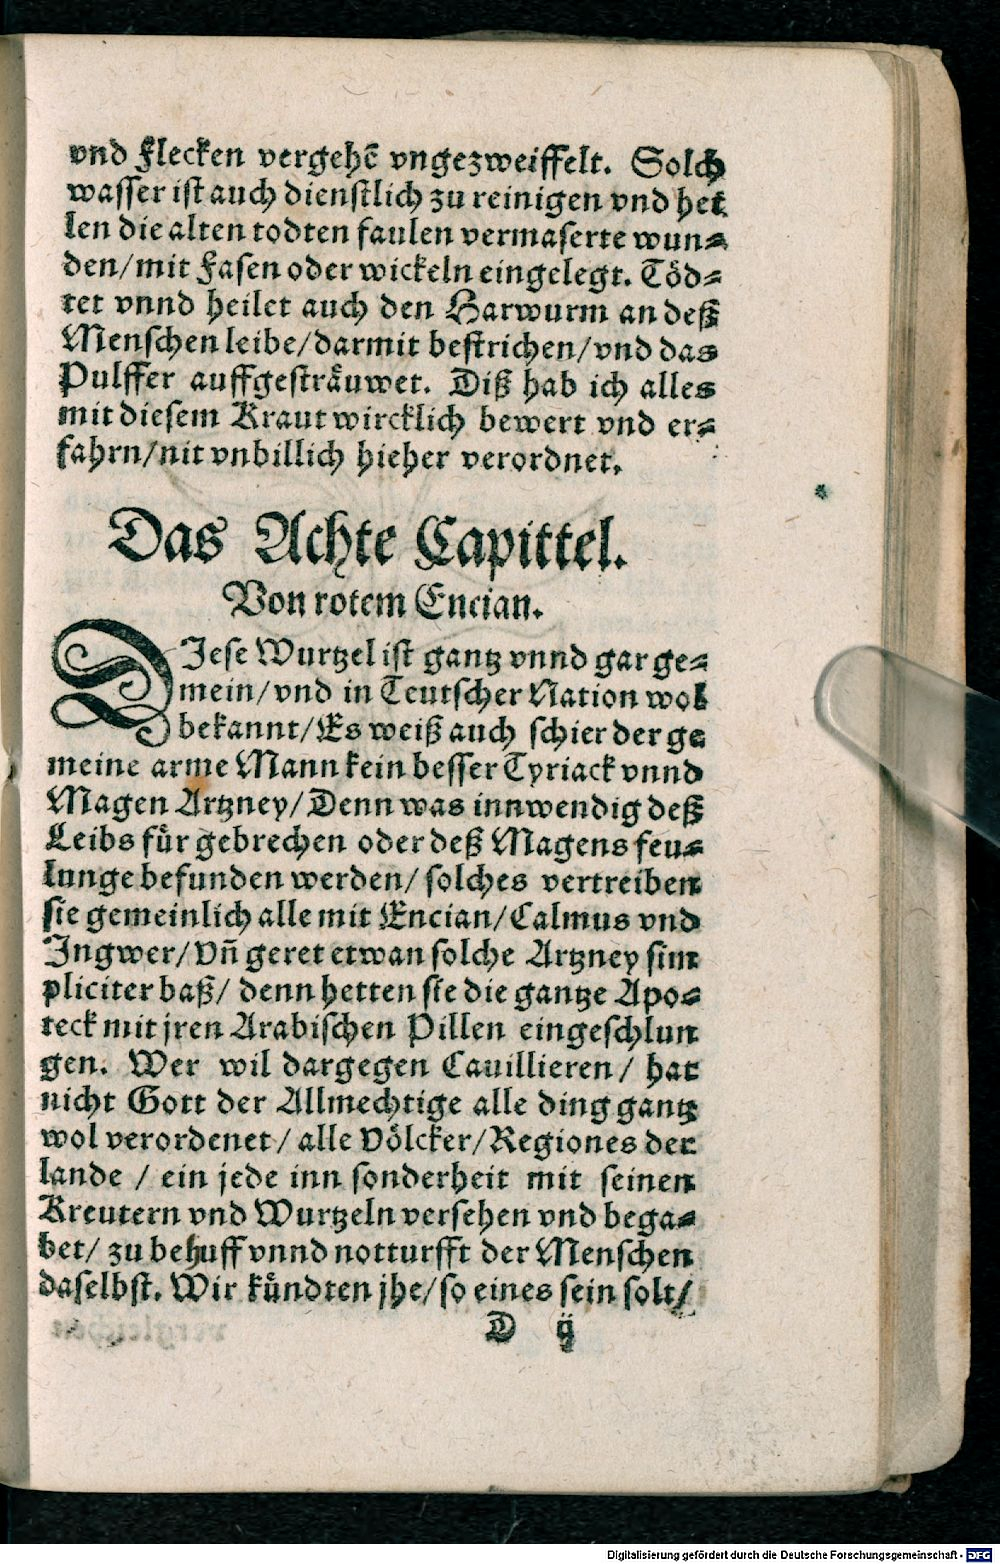 vnd Flecken vergehē vngezweiffelt. Solch
wasser ist auch dienstlich zu reinigen vnd hei
len die alten todten faulen vermaserte wun⸗
den/mit Fasen oder wickeln eingelegt. Töd⸗
tet vnnd heilet auch den Harwurm an deß
Menschen leibe/darmit bestrichen/vnd das
Pulffer auffgesträuwet. Diß hab ich alles
mit diesem Kraut wircklich bewert vnd er⸗
fahrn/nit vnbillich hieher verordnet.
Das Achte Capittel.
Von rotem Encian.
DIese Wurtzel ist gantz vnnd gar ge⸗
mein/vnd in Teutscher Nation wol
bekannt/Es weiß auch schier der ge
meine arme Mann kein besser Tyriack vnnd
Magen Artzney/Denn was innwendig deß
Leibs für gebrechen oder deß Magens feu⸗
lunge befunden werden/ solches vertreiben
sie gemeinlich alle mit Encian/Calmus vnd
Ingwer/Vñ geret etwan solche Artzney sim
pliciter baß/ denn hetten sie die gantze Apo⸗
teck mit jren Arabischen Pillen eingeschlun
gen. Wer wil dargegen Cauillieren/ hat
nicht Gott der Allmechtige alle ding gantz
wol verordenet/ alle Völcker/Regiones der
lande / ein jede inn sonderheit mit seinen
Kreutern vnd Wurtzeln versehen vnd bega⸗
bet/ zu behuff vnnd notturfft der Menschen
daselbst. Wir kündten jhe/so eines sein solt/
D ij
Digitalisierung gefördert durch die Deutsche Forschungsgemeinschaft - DFG